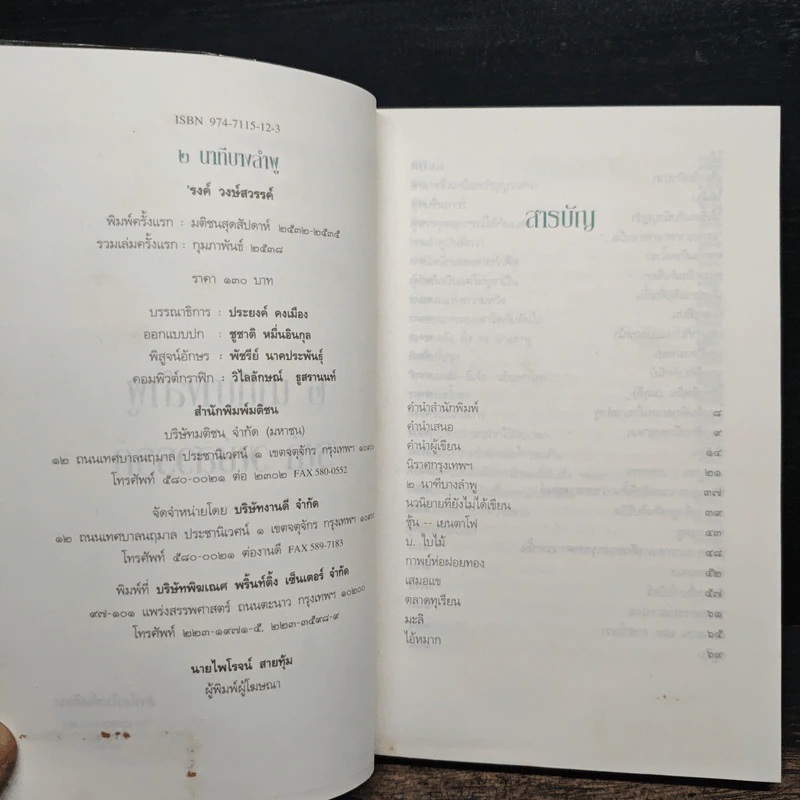 ISBN 974-7115-12-3
๒ นาทีบางลำพู
'รงค์ วงษ์สวรรค์
พิมพ์ครั้งแรก : มติชนสุดสัปดาห์ ๒๕๓๒-๒๕๓๕
รวมเล่มครั้งแรก : กุมภาพันธ์ ๒๕๓๘
ราคา ๑๓๐ บาท
บรรณาธิการ : ประยงค์ คงเมือง
ออกแบบปก : ชูชาติ หมื่นอินกุล
พิสูจน์อักษร : พัชรีย์ นาคประพันธุ์
คอมพิวต์กราฟิก : วิไลลักษณ์ ธูสรานนท์
สำนักพิมพ์มติชน
บริษัทมติชน จำกัด (มหาชน)
๑๒ ถนนเทศบาลนฤมาล ประชานิเวศน์ ๑ เขตจตุจักร กรุงเทพฯ ๑๐๙๐๐
โทรศัพท์ ๕๘๐-๐๐๒๑ ต่อ ๒๓๐๒ FAX 580-0552
จัดจำหน่ายโดย บริษัทงานดี จำกัด
๑๒ ถนนเทศบาลนฤมาล ประชานิเวศน์ ๑ เขตจตุจักร กรุงเทพฯ
โทรศัพท์ ๕๘๐-๐๐๒๑ ต่องานดี FAX 589-7183
พิมพ์ที่ บริษัทพิฆเณศ พริ้นท์ติ้ง เซ็นเตอร์ จำกัด
๙๗-๑๐๑ แพร่งสรรพศาสตร์ ถนนตะนาว กรุงเทพฯ ๑๐๒๐๐
โทรศัพท์ ๒๒๓-๑๙๗๑-๕, ๒๒๓-๓๕๙๘-๙
นายไพโรจน์ สายทุ้ม
ผู้พิมพ์ผู้โฆษณา
สารบัญ
คำนำสำนักพิมพ์ ๘
คำนำเสนอ ๙
คำนำผู้เขียน ๑๔
นิราศกรุงเทพฯ ๒๑
๒ นาฑีบางลำพู ๓๗
นวนิยายที่ยังไม่ได้เขียน ๓๙
ซุ้น -- เยนตาโฟ ๔๓
บ. ใบไม้ ๔๘
กาพย์ห่อฝอยทอง ๕๒
เสมอแข ๕๗
ตลาดทุเรียน ๖๑
มะลิ ๖๕
ไอ้หมาก ๖๙